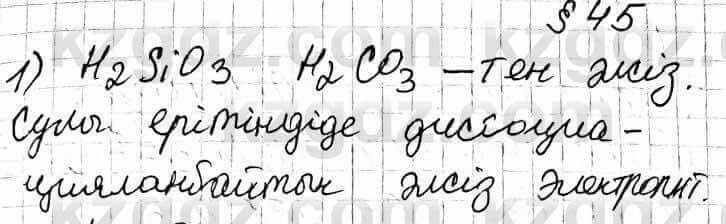 § 45
1) H₂SiO₃ H₂CO₃ – тен әлсіз.
Сулы ерітіндіде диссоциа –
цияланбайтын әлсіз электролит.